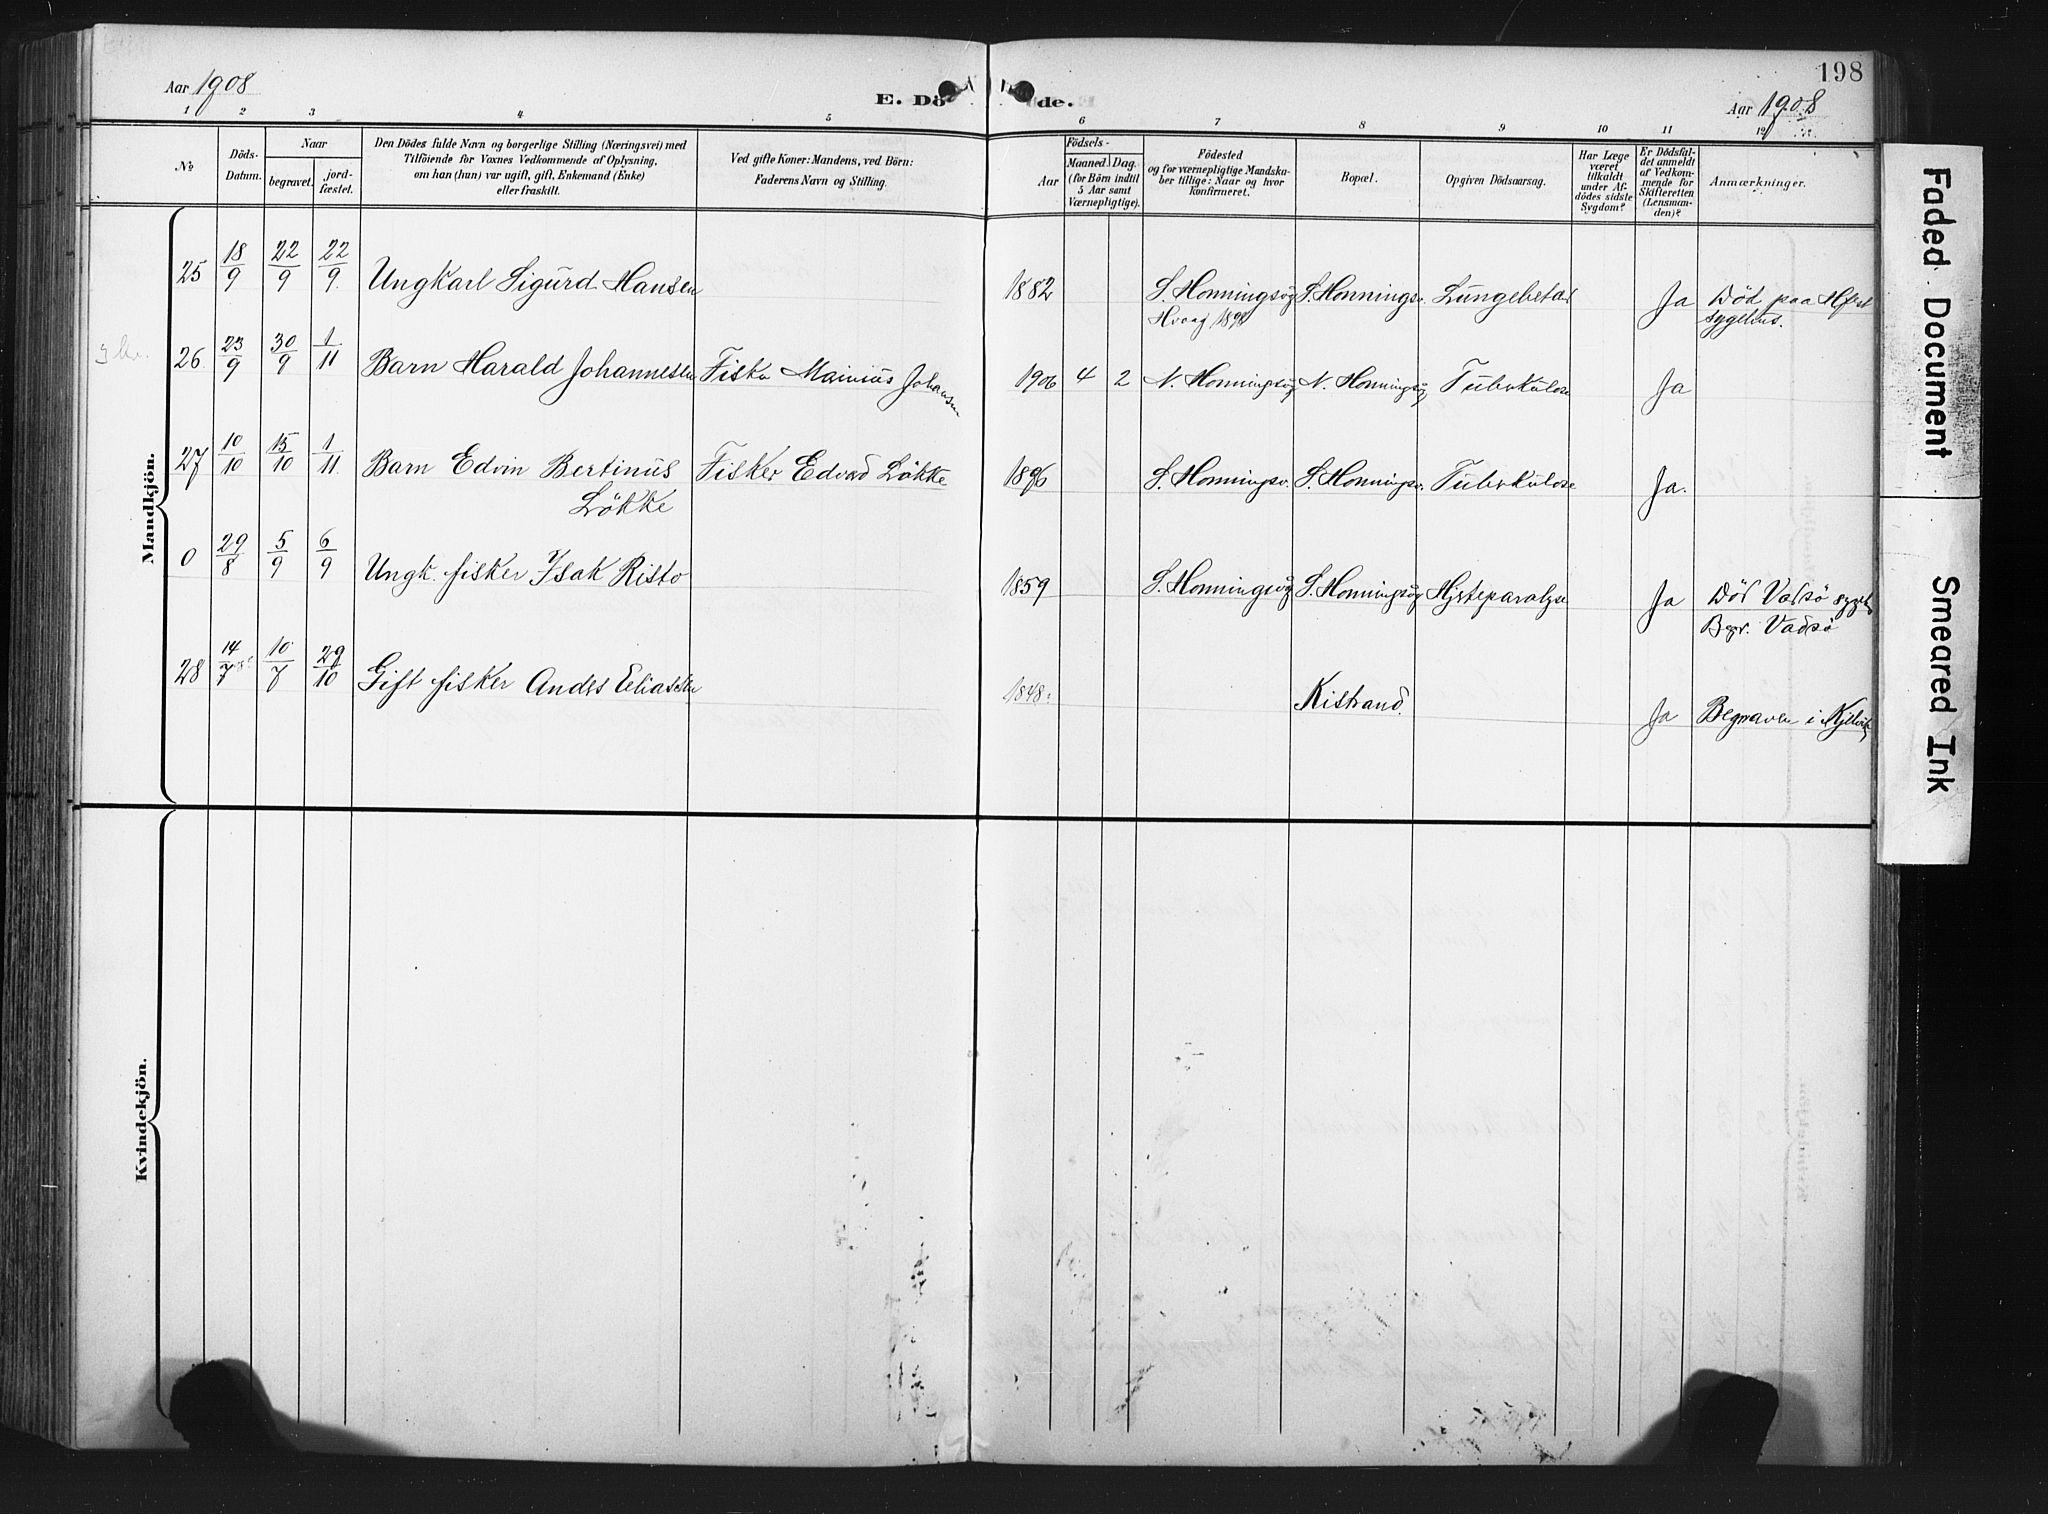 198
Aar 1908
E. Dö de.
Aar 1908
1 2 3 4 5 6 7 8 9 10 11 12
No
Döds-
Datum.
Naar
begravet.
jord-
fæstet.
Den Dödes fulde Navn og borgerlige Stilling (Næringsvei) med
Tilföiende for Voxnes Vedkommende af Oplysning,
om han (hun) var ugift, gift, Enkemand (Enke)
eller fraskilt.
Ved gifte Koner: Mandens, ved Börn:
Faderens Navn og Stilling.
Födsels-
Aar
Maaned. Dag.
(for Börn indtil
5 Aar samt
Værnepligtige).
Födested
og for værnepligtige Mandska-
ber tillige: Naar og hvor
konfirmeret.
Bopæl.
Opgiven Dödsaarsag.
Har Læge
været
tilkaldt
under Af-
dödes sidste
Sygdom?
Er Dödsfal-
det anmeldt
af Vedkom-
mende for
Skifteretten
(Lensman-
den)?
Anmærkninger.
Mandkjön.
25 18/9 22/9 22/9. Ungkarl Sigurd Hansen 1882 S. Honningsvåg S. Honningsv. Ja Död paa
sygehus.
26 23/9 30/9 1/11 Barn Harald Johannesen Fisker Johansen 1906 4 2 N. Honningsvåg N. Honningsvåg Tuberkulose Ja
27 10/10 15/10 1/11. Barn Edvin Bertinus Fisker Edvard Lökke 1896 S. Honningsv. S. Honningsv. Tuberkulose Ja.
Lökke
0 29/8 5/9 6/9 Ungk. fisker Isak Risto 1859 S. Honningsvåg S. Honningsvåg Hjerteparalyse Ja Död Vadsö sygehus
Begr. Vadsö
28 14/7 10/7 29/10 Gift fisker Anders Eliassen 1848 Kistrand. Ja Begraven i Kjelvik
Kvindekjön.
Faded Document
Smeared Ink